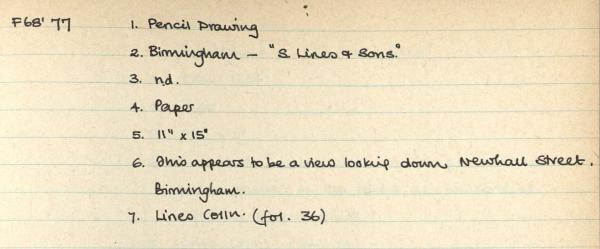 F68' 77 1. Pencil Drawing
2. Birmingham – "S. Lines & Sons."
3. n.d.
4. Paper
5. 11" x 15"
6. This appears to be a view looking down Newhall Street.
Birmingham.
7. Lines Colln. (fol. 36)